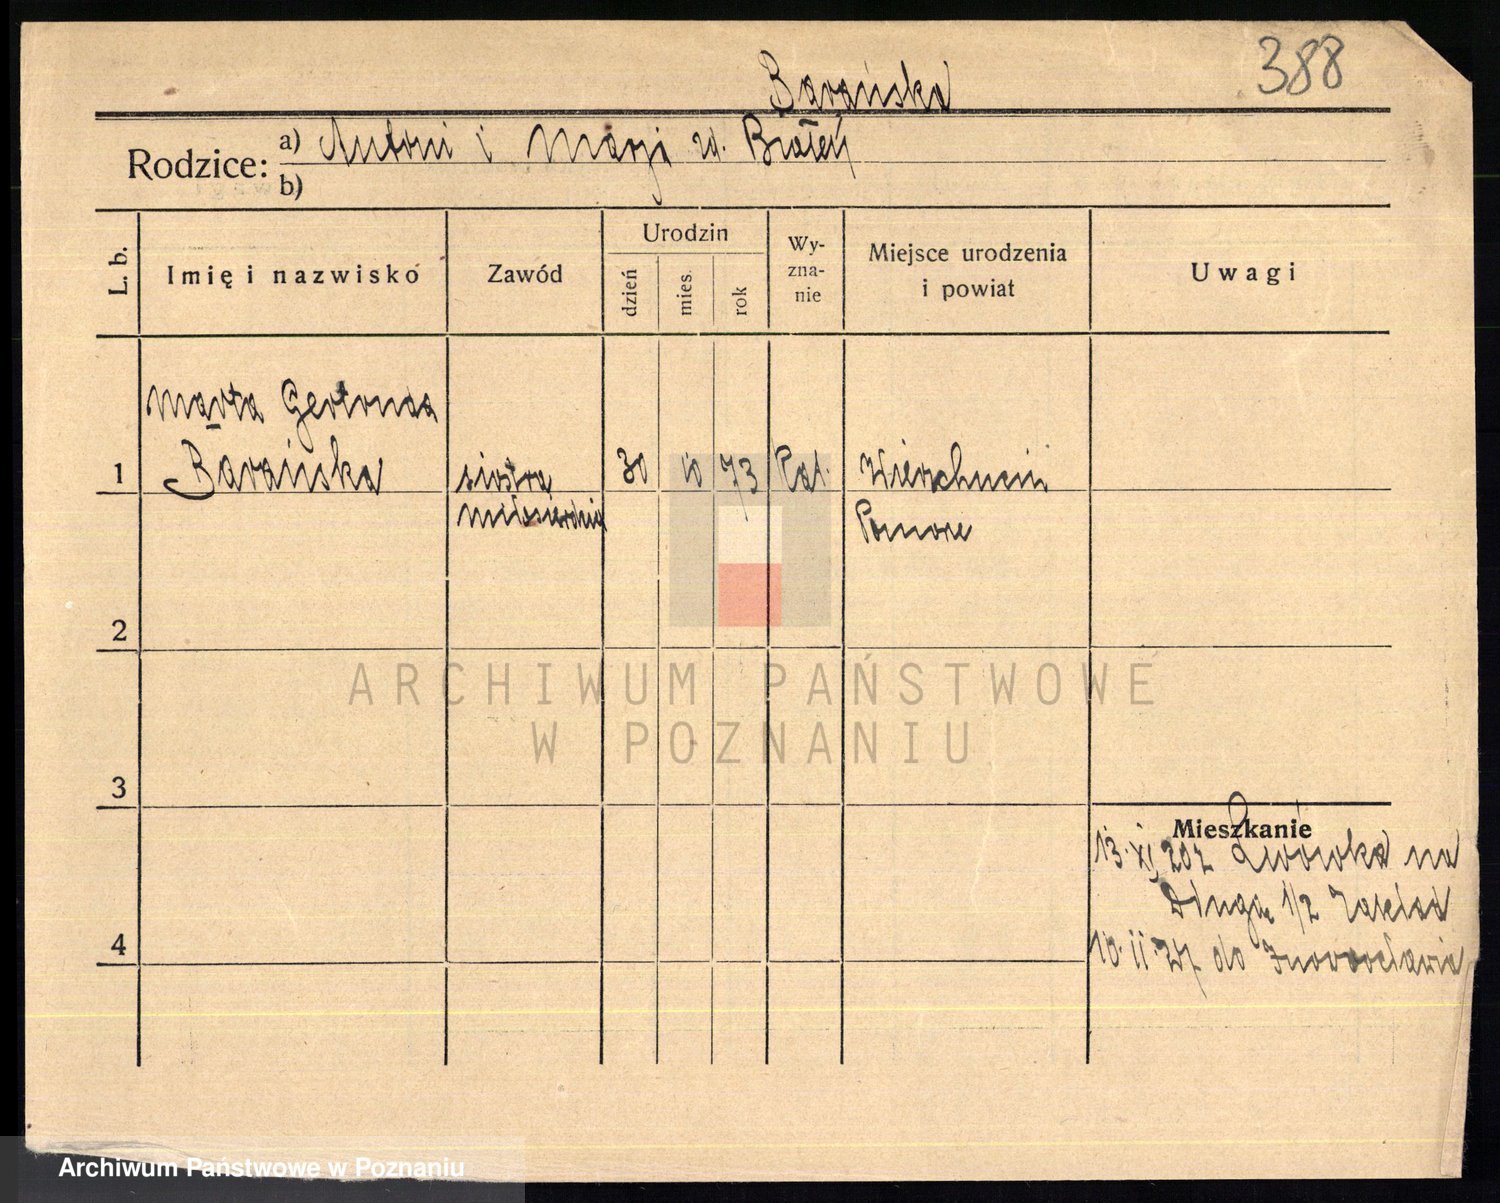 388
Barańska
Rodzice: a) Antoni i Marji zd. Białeń
b)
L. b. Imię i nazwisko Zawód Urodzin dzień mies. rok Wy-zna-nie Miejsce urodzenia i powiat Uwagi
Marta Gertruda
1 Barańska siostra 30 10 73 Kat. Wierzchucin
miłosierdzia Pomorze
2
ARCHIWUM PAŃSTWOWE
W POZNANIU
3
Mieszkanie
13. XI 20 z Lwówka na
Długa 1/2 Zakład
10. II. 27 do Inowrocławia
4
Archiwum Państwowe w Poznaniu